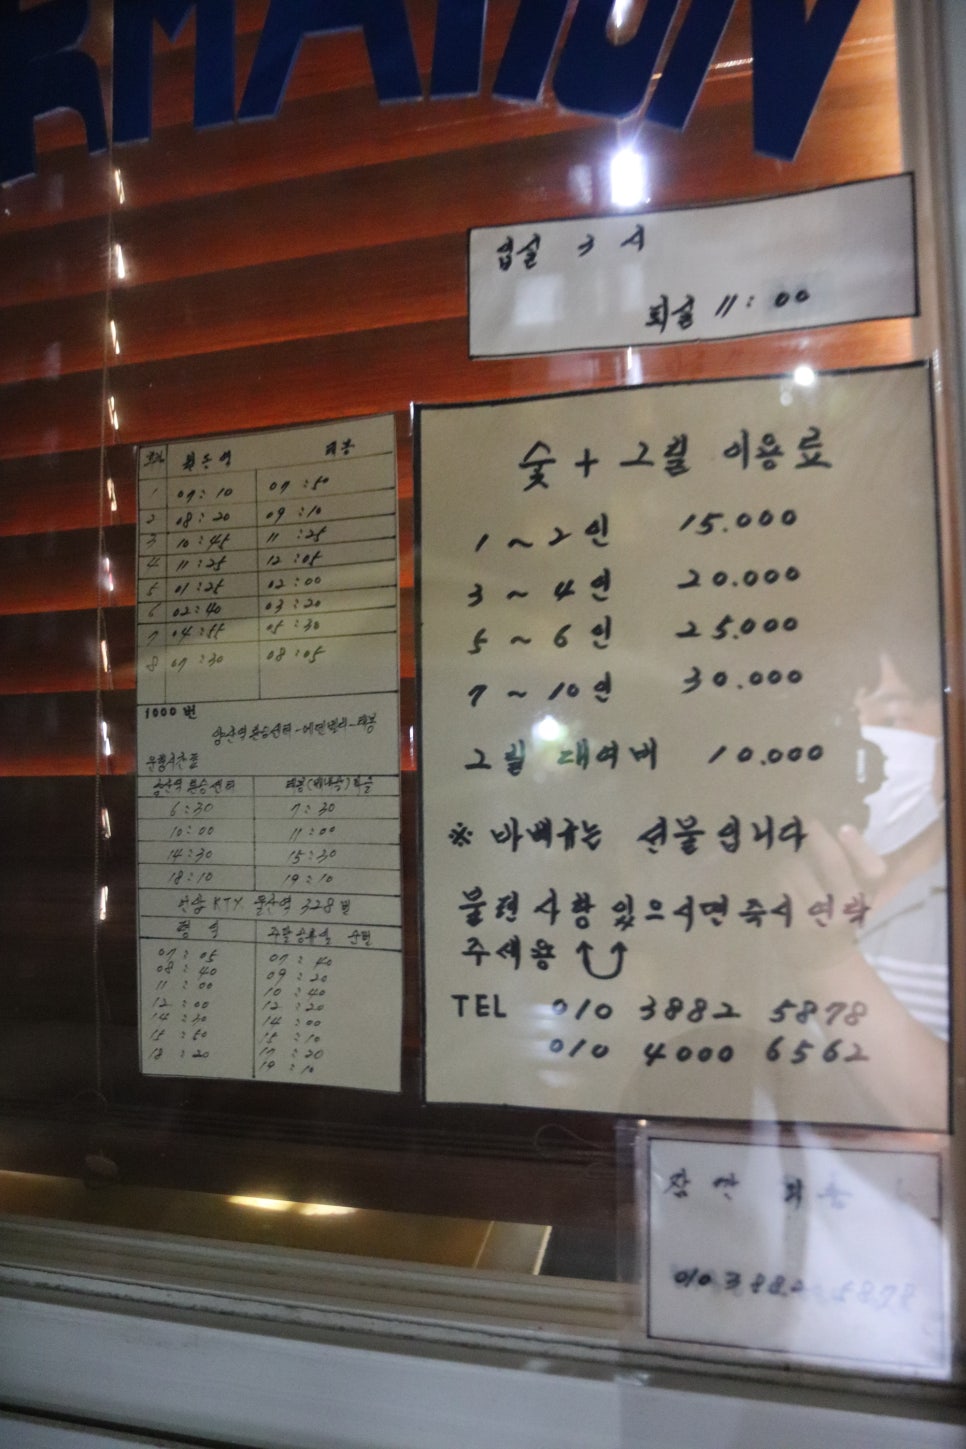 RMATION
입실 3시
퇴실 11:00
숯 + 그릴 이용료
1 ~ 2인 15.000
3 ~ 4인 20.000
5 ~ 6인 25.000
7 ~ 10인 30.000
그릴 대여비 10.000
※ 바베큐는 선불입니다
불편사항 있으시면 즉시 연락
주세용
TEL 010 3882 5878
010 4000 6562
잠깐 외출
010 3882 5878
태봉
1 07:10 07:50
2 08:20 09:10
3 10:45 11:25
4 11:25 12:05
5 01:25 02:00
6 02:40 03:20
7 04:55 05:30
8 07:30 08:05
1000번
운행시간표
6:30 7:30
10:00 11:00
14:30 15:30
18:10 19:10
KTX 울산역 328번
평일
07:05 07:40
08:40 09:20
11:00 10:40
12:00 12:20
14:30 14:00
15:50 15:10
18:20 17:20
19:10